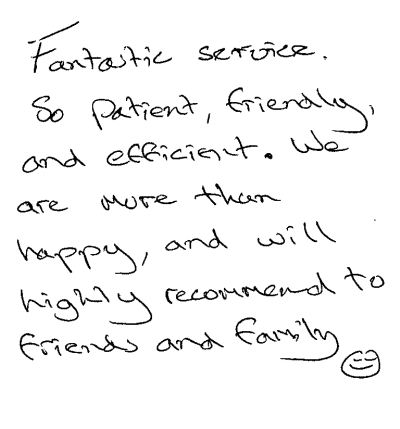 Fantastic service.
So patient, friendly,
and efficient. We
are more than
happy, and will
highly recommend to
friends and family